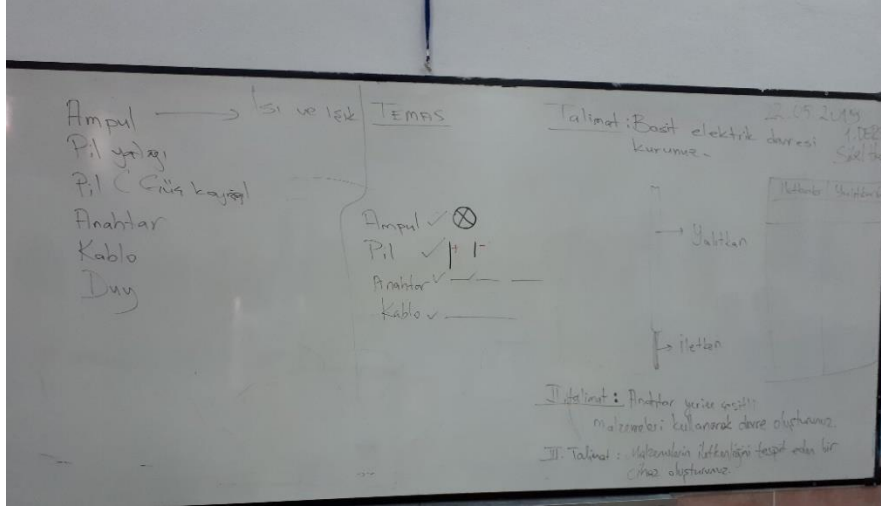 Ampul → Isı ve Işık
Pil yatağı
Pil (Güç kaynağı
Anahtar
Kablo
Duy
TEMAS
Ampul ✓
Pil ✓ + -
Anahtar ✓
Kablo ✓
Talimat: Basit elektrik devresi
kurunuz.
22.05.2019
1.DERS
→ Yalıtkan
→ iletken
İletkenler
II. talimat: Anahtar yerine çeşitli
malzemeleri kullanarak devre oluşturunuz.
III. Talimat: Malzemelerin iletkenliğini tespit eden bir
cihaz oluşturunuz.